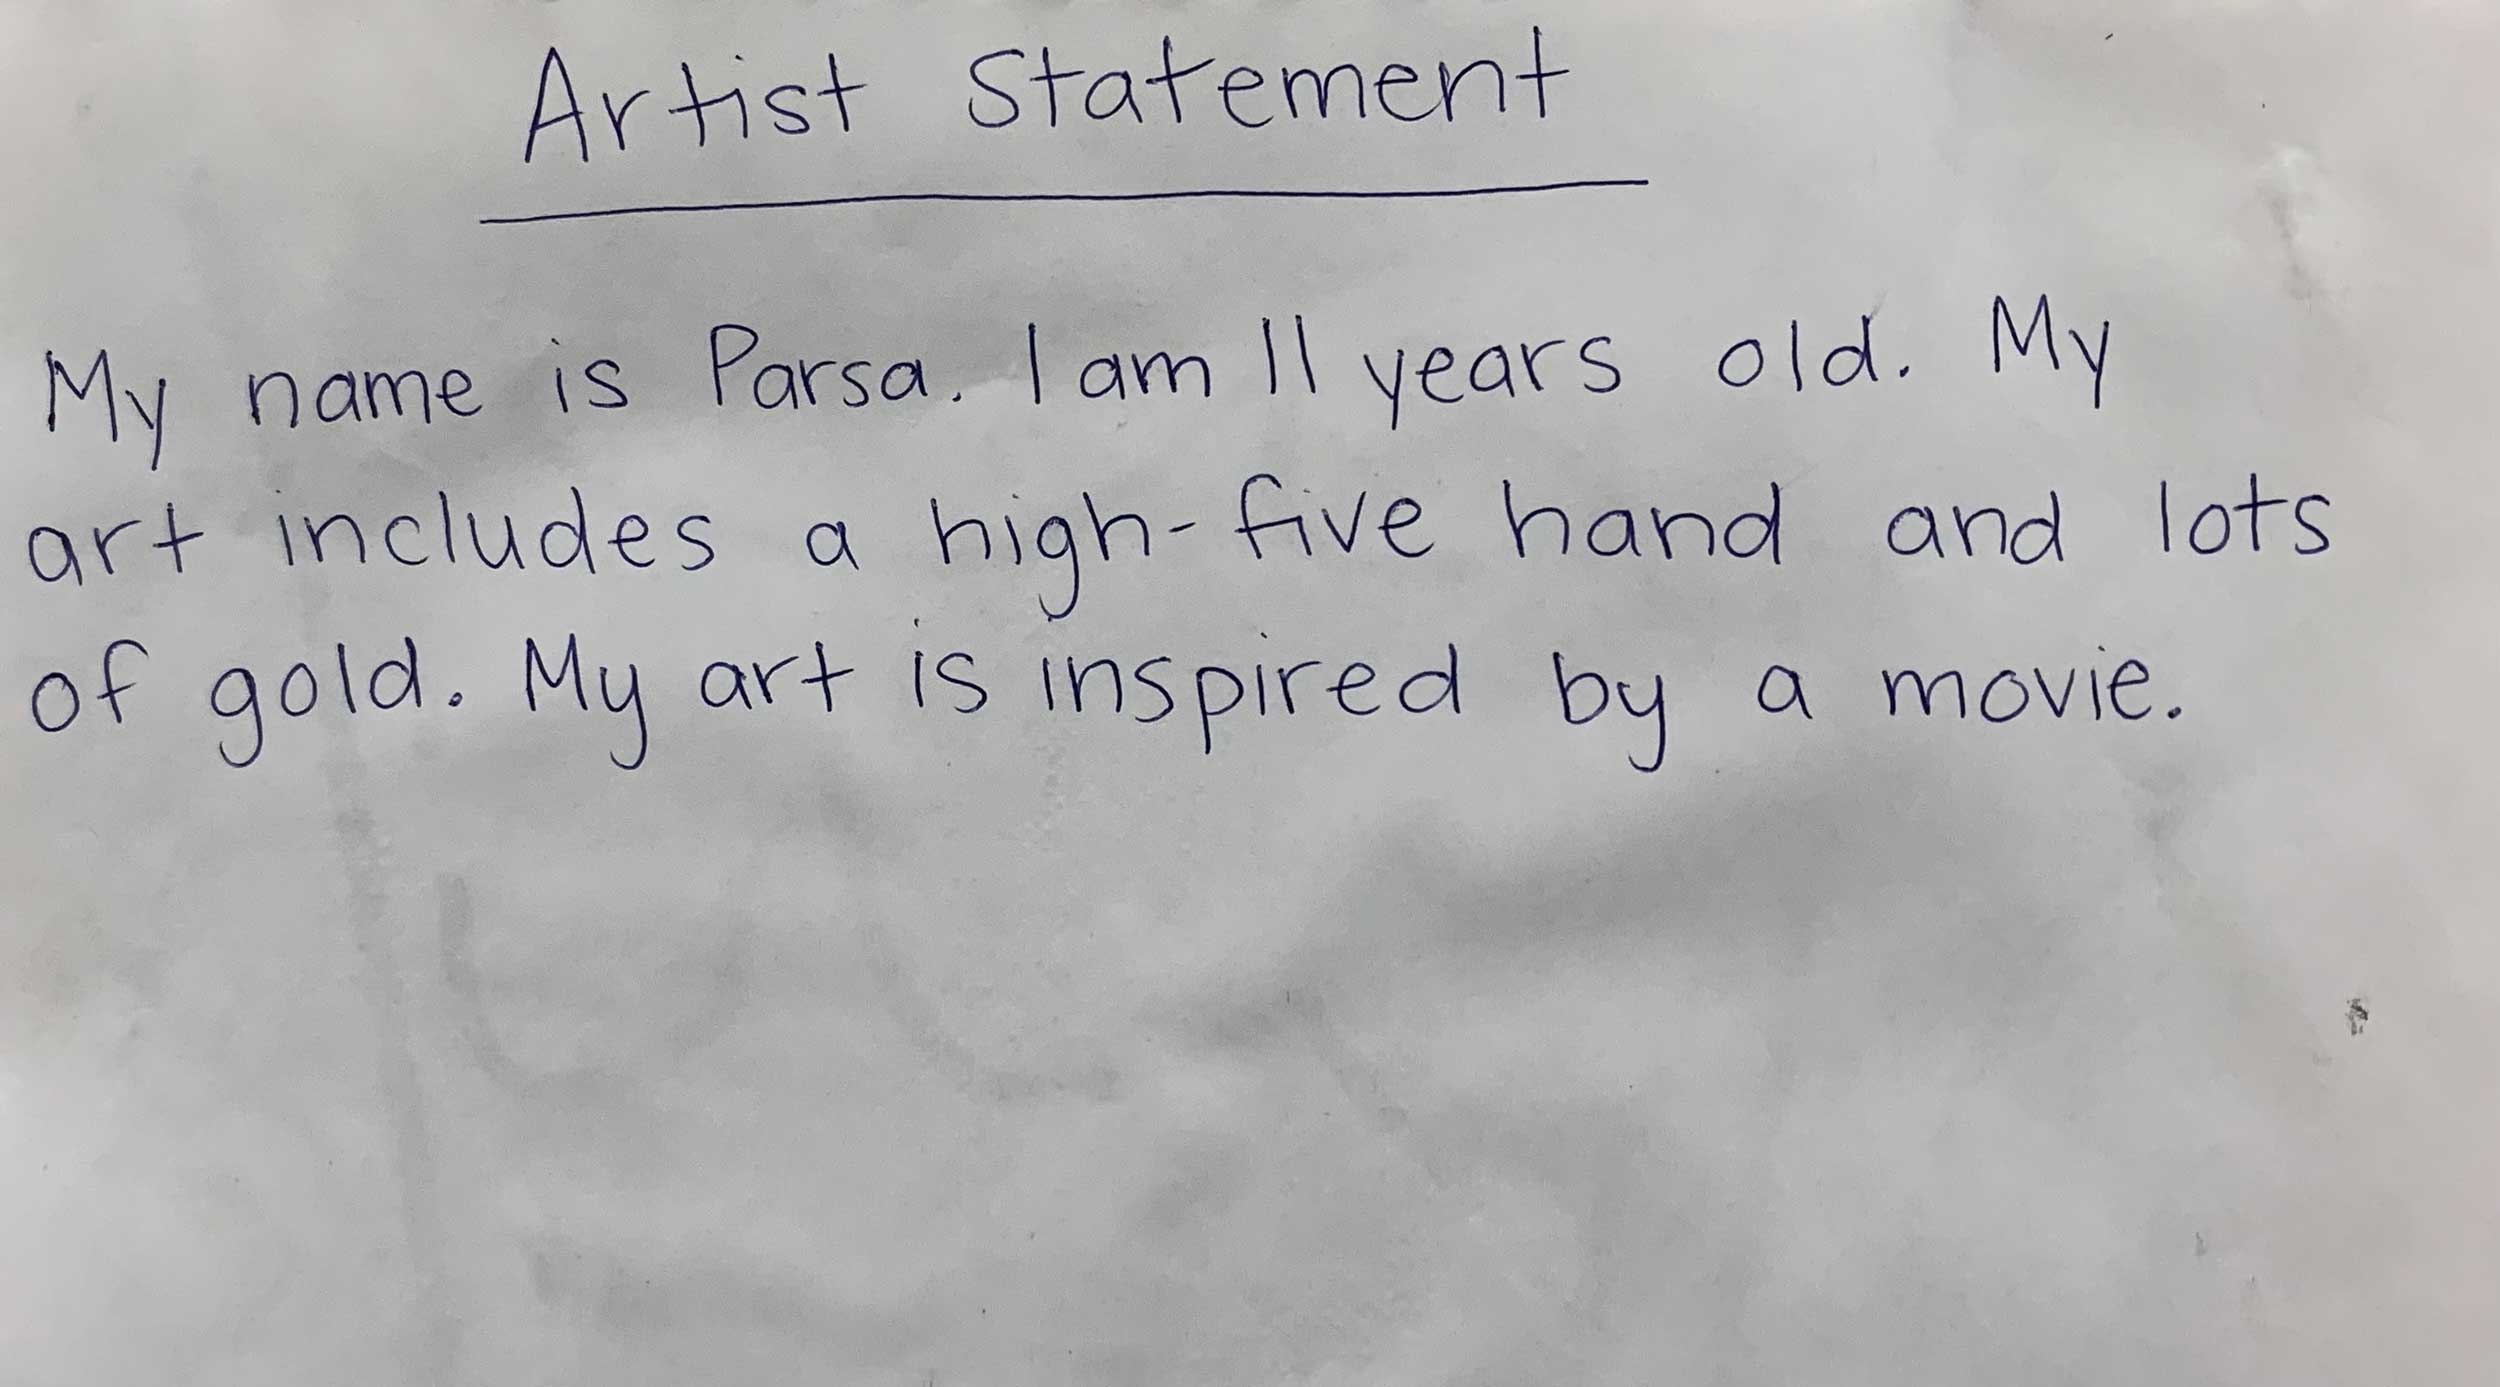 Artist Statement
My name is Parsa. I am 11 years old. My
art includes a high-five hand and lots
of gold. My art is inspired by a movie.